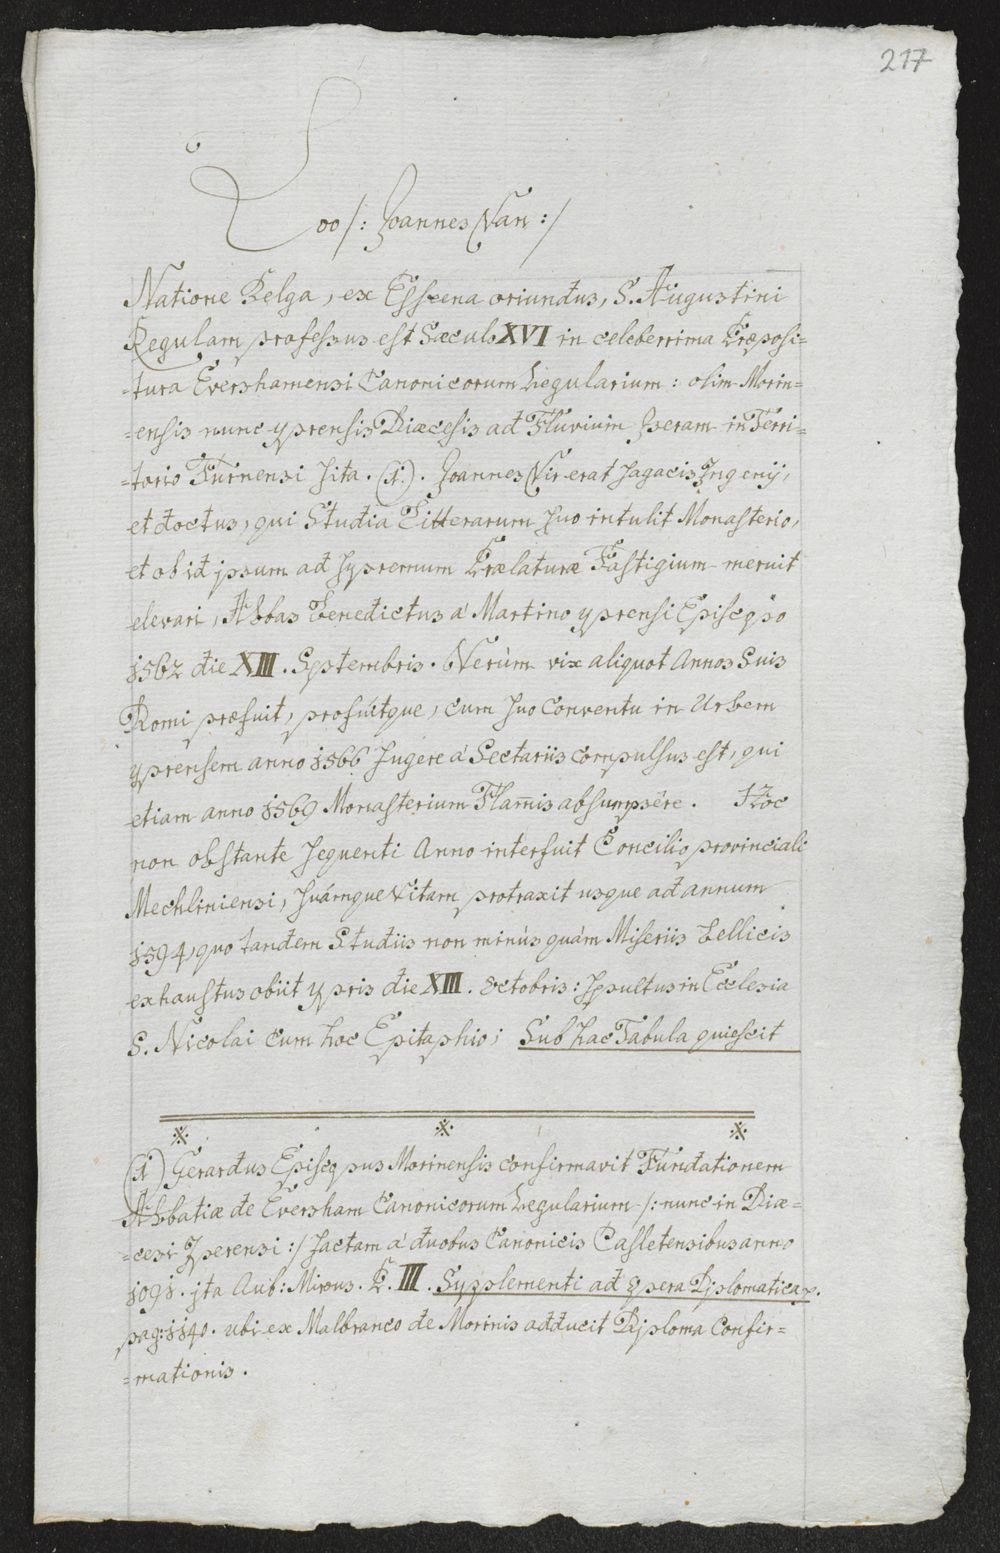 217
Loo /: Joannes Van :/
Natione Belga, ex Essena oriundus, S. Augustini
Regulam professus est Sæculo XVI in celeberrima Præposi=
=tura Evershamensi Canonicorum Regularium : olim Morin=
=ensis nunc yprensis Diæcesis ad Fluvium Jseram in Terri=
=torio Furnensi sita. (A). Joannes Vir erat sagacis Jngenij,
et doctus, qui Studia Litterarum suo intulit Monasterio,
et ob id jpsum ad supremum Prælaturæ Fastigium meruit
elevari, Abbas Benedictus á Martino yprensi Episcopo
1562 die XIII. Septembris. Verùm vix aliquot Annos Suis
Domi præfuit, profuitque, cum suo Conventu in Urbem
yprensem anno 1566 fugere á Sectariis compulsus est, qui
etiam anno 1569 Monasterium Flam̄is absumpsêre. Hoc
non obstante sequenti Anno interfuit Concilio provinciali
Mechliniensi, suámque Vitam protraxit usque ad annum
1594, quo tandem Studiis non minùs quám Miseriis bellicis
exhaustus obiit ypris die XIII. octobris: sepultus in Ecclesia
S. Nicolai cum hoc Epitaphio; Sub hac Tabula quiescit
(A) Gerardus Episcopus Morinensis confirmavit Fundationem
Abbatiæ de Eversham Canonicorum Regularium /: nunc in Diæ=
=cesi Jperensi :/ factam á duobus Canonicis Casletensibus anno
1091. jta Aub: Miræus. P. III. Supplementi ad opera Diplomatica.
pag: 1140. ubi ex Malbranco de Morinis adducit Diploma Confir=
=mationis.